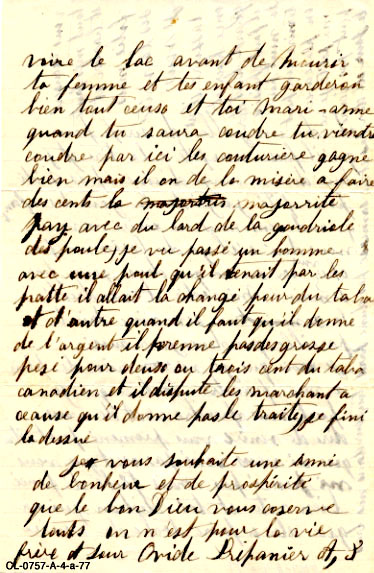 voire le lac avant de mourir
ta femme et tes enfant garderon
bien tout ceuse et toi mari-anne
quand tu saura coudre tu viendra
coudre par ici les couturiere gagne
bien mais il on de la misère a faire
des cents la majorité majorrité
pay avec du lard de la goudriole
des poule, je vu passé un homme
avec une poul qu'il tenait par les
patte il allait la changé pour du taba
et d'autre quand il faut qu'il donne
de l'argent il prenne pas des grosse
pesé pour deuse ou trois cent du taba
canadien et il dispute les marchant a
cause qu'il donne pas le traite, je fini
la dessue
je vous souhaite une anné
de bonheur et de prospérité
que le bon Dieu vous coserve
touts on n'est pour la vie
frère et sœur Ovide Trépanier et, S
OL-0757-A-4-a-77